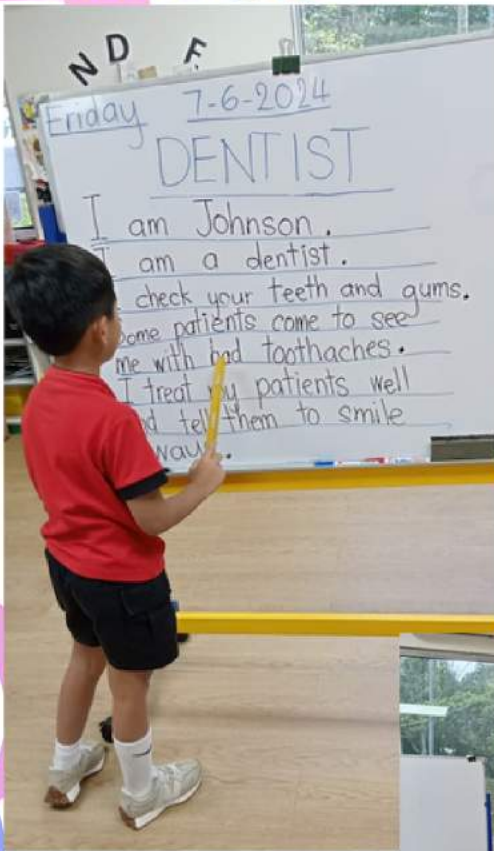 N D E
Friday 7-6-2024
DENTIST
I am Johnson.
I am a dentist.
check your teeth and gums.
Some patients come to see
me with bad toothaches.
I treat my patients well
tell them to smile